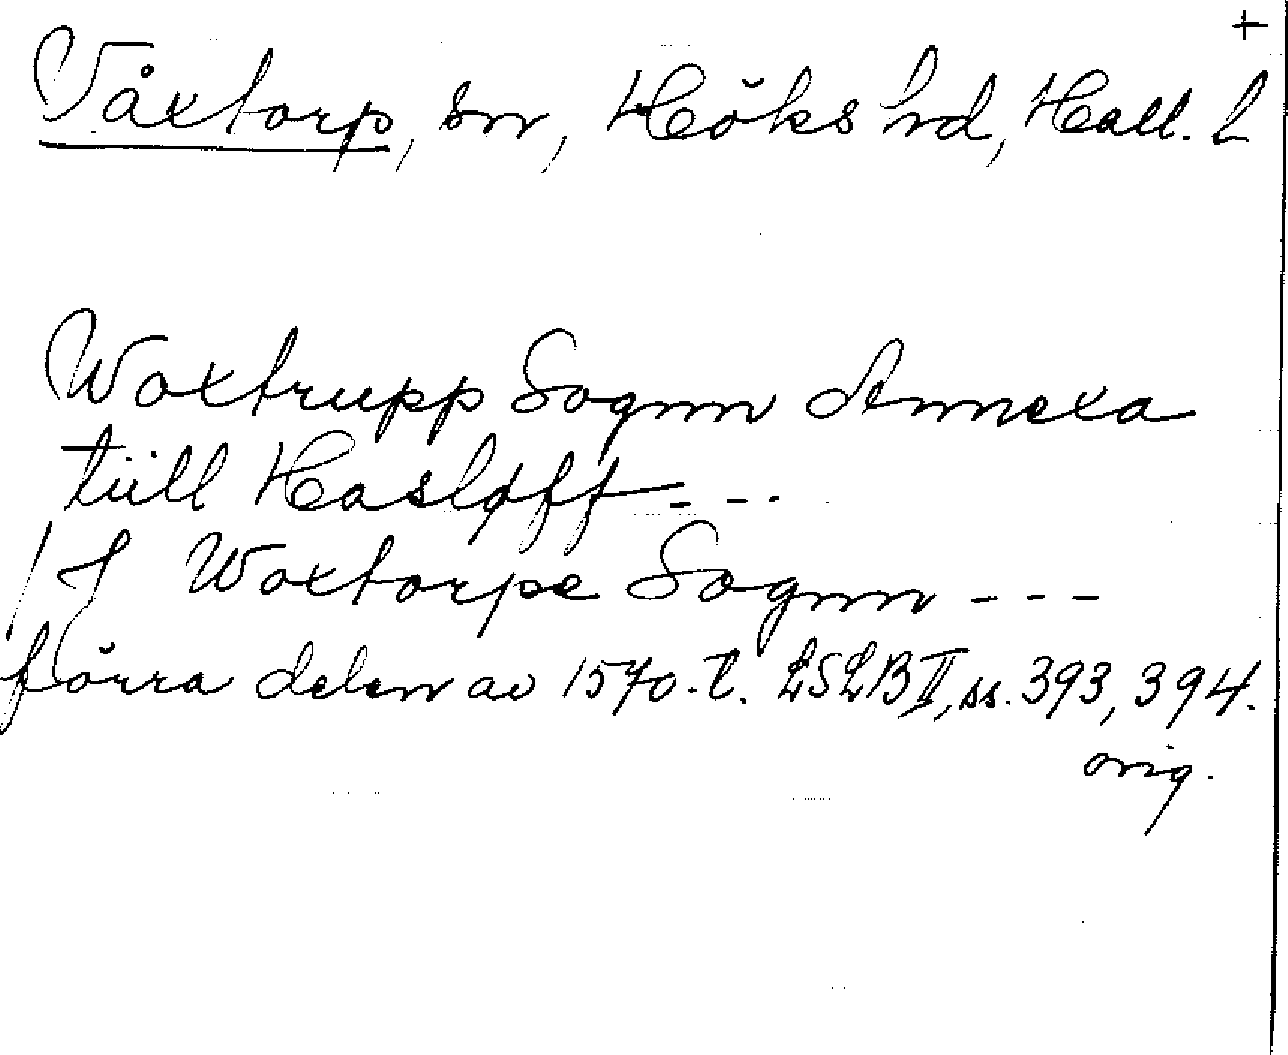 +
Våxtorp, sn, Höks hd, Hall. l
Woxtrupp Sognn Annexa
tüll Hasløff - - -
/ J Woxtorpe Sognn - - -
förra delen av 1570-t. LSLB II, ss. 393, 394.
orig.